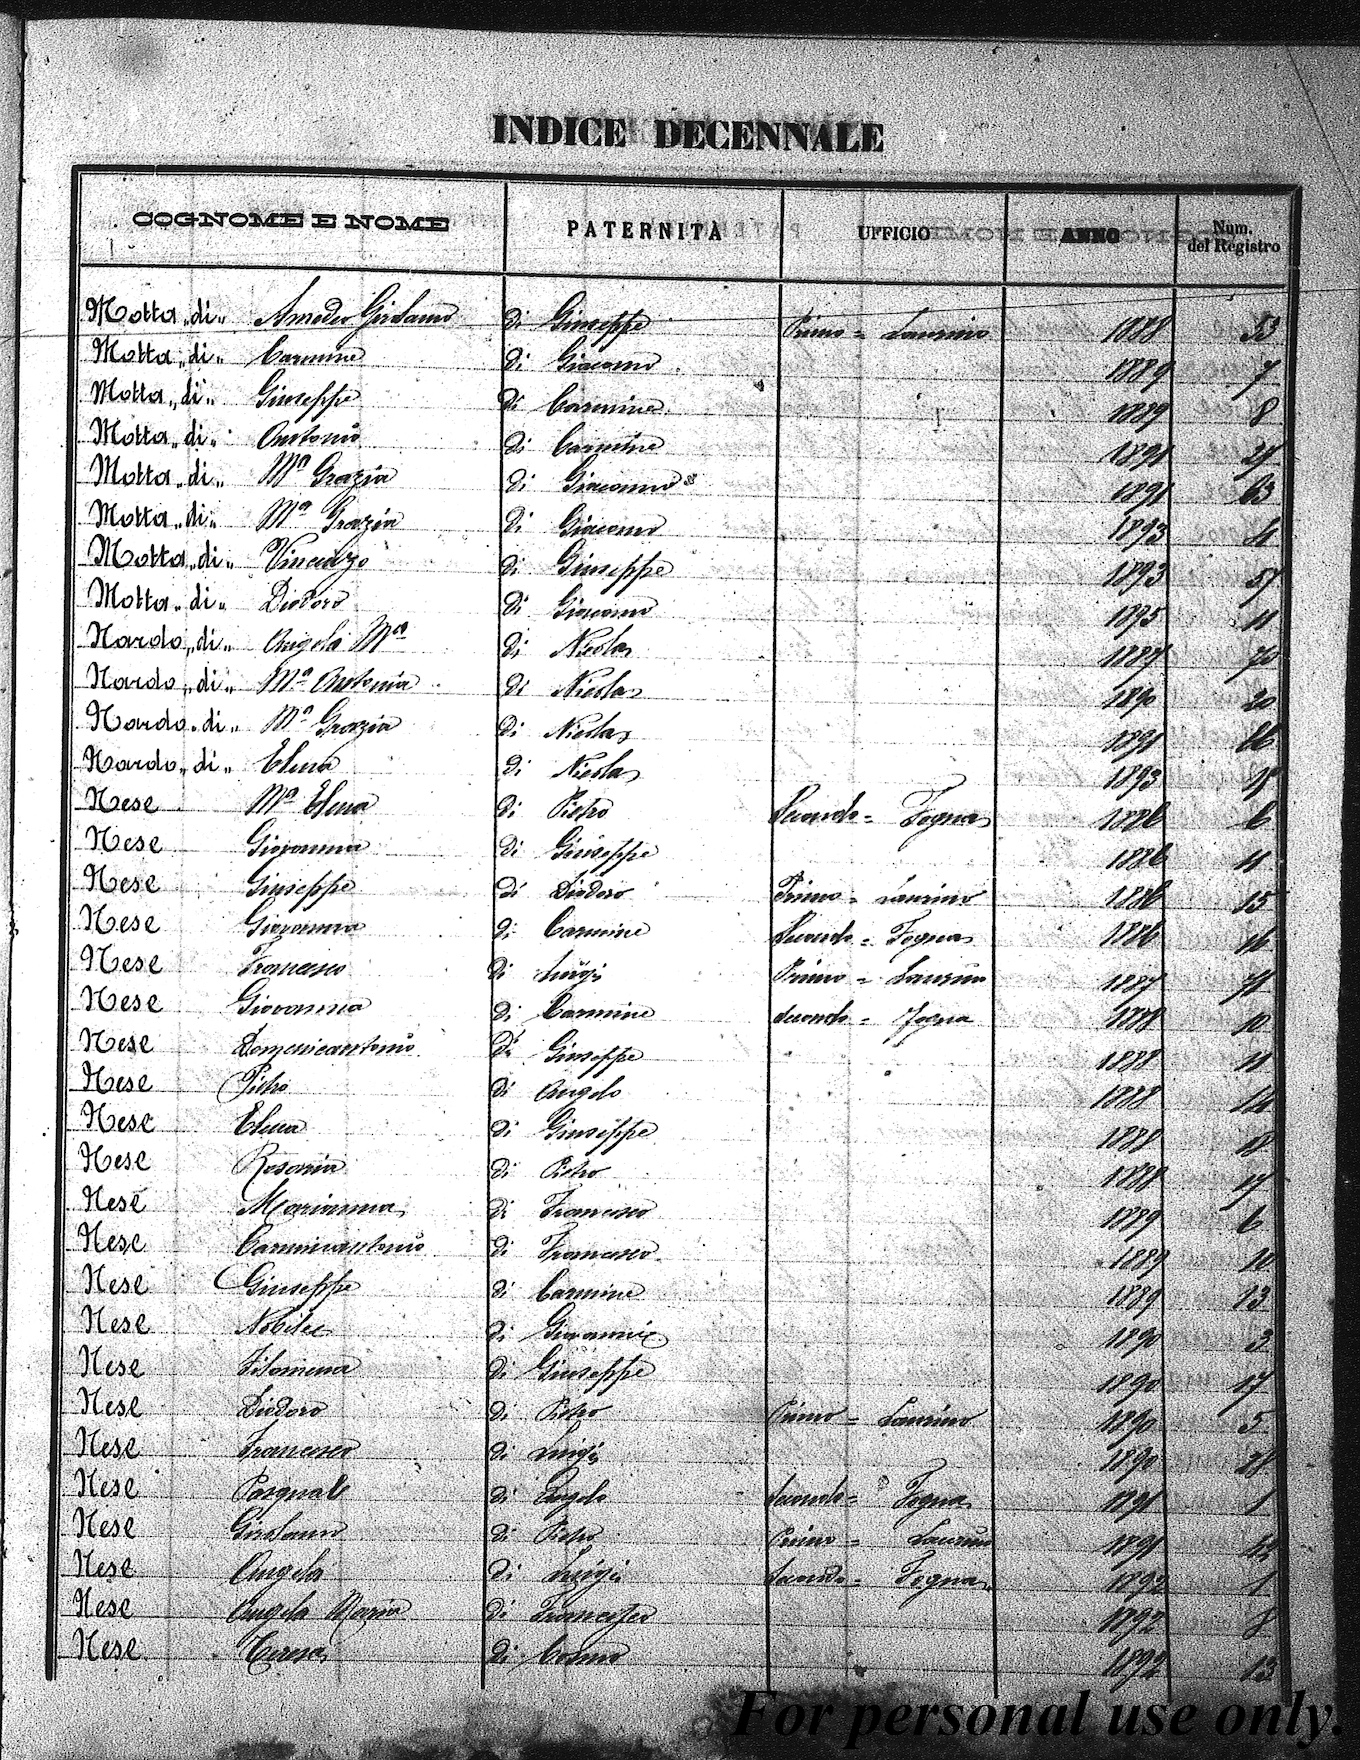 INDICE DECENNALE
COGNOME E NOME PATERNITÀ UFFICIO ANNO Num. del Registro
Motta „di„ Amedeo Girolamo di Giuseppe Primo = Laurino 1888 53
Motta „di„ Carmine di Giacomo 1889 7
Motta „di„ Giuseppe di Carmine 1889 8
Motta „di„ Antonio di Carmine 1891
Motta „di„ Mª Grazia di Giacomo 1891 63
Motta „di„ Mª Grazia di Giacomo 1893 4
Motta „di„ Vincenzo di Giuseppe 1893 57
Motta „di„ Diodoro di Giacomo 1895 11
Nardo „di„ Angela Mª di Nicola 1887 70
Nardo „di„ Mª Antonia di Nicola 1890 20
Nardo „di„ Mª Grazia di Nicola 1891
Nardo „di„ Elena di Nicola 1893
Nese Mª Elena di Pietro Secondo = Fogna 1886 6
Nese Giovanna di Giuseppe 1886 11
Nese Giuseppe di Diodoro Primo = Laurino 1886 15
Nese Giovanna di Carmine Secondo = Fogna 1886 16
Nese Francesco di Luigi Primo = Laurino 1887
Nese Giovanna di Carmine Secondo = Fogna 1888 10
Nese Domenicantonio di Giuseppe 1888 11
Nese Pietro di Angelo 1888 14
Nese Elena di Giuseppe 1888 18
Nese Rosaria di Pietro 1888 17
Nese Marianna di Francesco 1889 6
Nese Carminantonio di Francesco 1889 10
Nese Giuseppe di Carmine 1889 13
Nese Nobile di Giovanni 1890 3
Nese Filomena di Giuseppe 1890 17
Nese Diodoro di Pietro Primo = Laurino 1890 5
Nese Francesco di Luigi 1890 28
Nese Pasquale di Angelo Secondo = Fogna 1891 1
Nese Girolamo di Pietro Primo = Laurino 1891
Nese Angela di Luigi Secondo = Fogna 1892 1
Nese Angela Maria di Francesco 1892 8
Nese Teresa di Cosmo 1892 13
For personal use only.